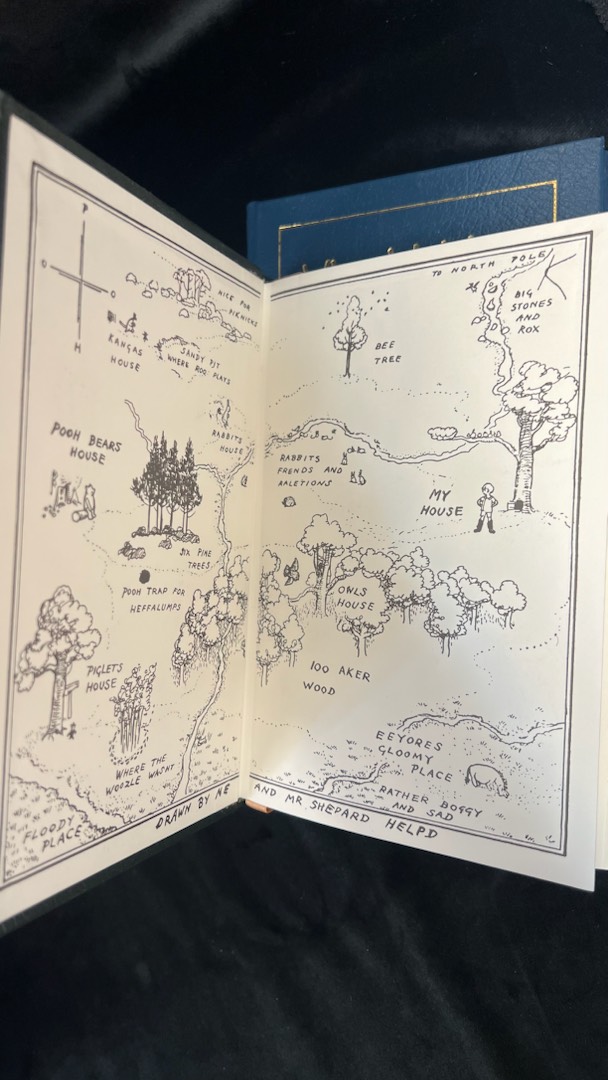 P
O
O
H
NICE FOR
PIKNICKS
KANGAS
HOUSE
SANDY PIT
WHERE ROO PLAYS
POOH BEARS
HOUSE
RABBITS
HOUSE
SIX PINE
TREES
POOH TRAP FOR
HEFFALUMPS
PIGLETS
HOUSE
WHERE THE
WOOZLE WASNT
FLOODY
PLACE
TO NORTH POLE
BIG
STONES
AND
ROX
BEE
TREE
RABBITS
FRENDS AND
RALETIONS
MY
HOUSE
OWLS
HOUSE
100 AKER
WOOD
EEYORES
GLOOMY
PLACE
RATHER BOGGY
AND SAD
DRAWN BY ME AND MR SHEPARD HELPD